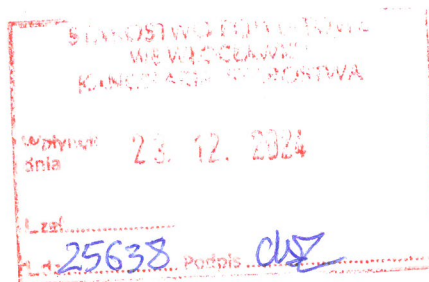 STAROSTWO POWIATOWE
WE WŁOCŁAWKU
KANCELARIA STAROSTWA
Wpłynęło
dnia 23. 12. 2024
L. zał.
L.dz. 25638 Podpis